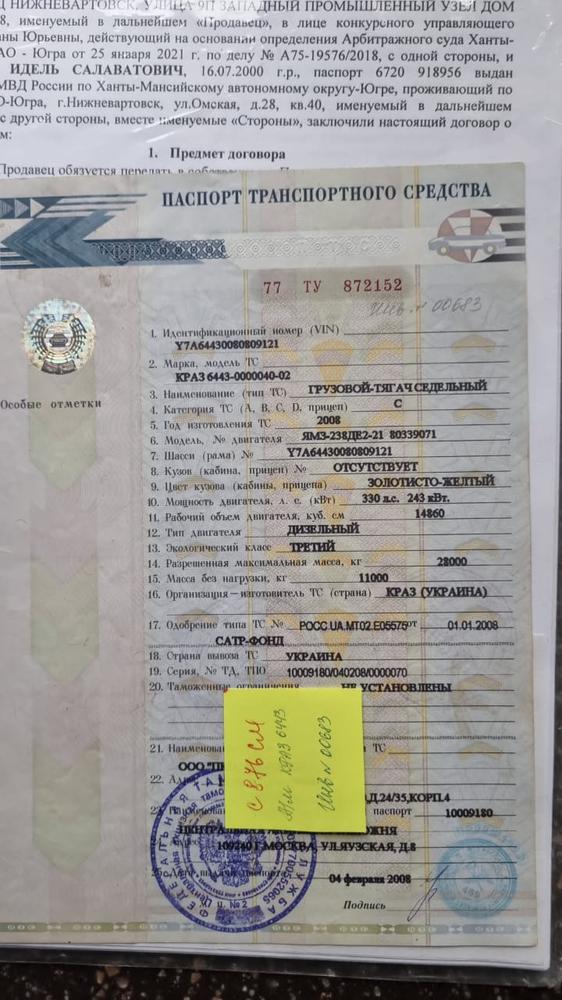 Ц НИЖНЕВАРТОВСК, УЛИЦА 9П ЗАПАДНЫЙ ПРОМЫШЛЕННЫЙ УЗЕЛ ДОМ
8, именуемый в дальнейшем «Продавец», в лице конкурсного управляющего
ны Юрьевны, действующий на основании определения Арбитражного суда Ханты-
АО - Югра от 25 января 2021 г. по делу № А75-19576/2018, с одной стороны, и
ИДЕЛЬ САЛАВАТОВИЧ, 16.07.2000 г.р., паспорт 6720 918956 выдан
МВД России по Ханты-Мансийскому автономному округу-Югре, проживающий по
О-Югра, г.Нижневартовск, ул.Омская, д.28, кв.40, именуемый в дальнейшем
с другой стороны, вместе именуемые «Стороны», заключили настоящий договор о
м:
1. Предмет договора
Продавец обязуется передать в
ПАСПОРТ ТРАНСПОРТНОГО СРЕДСТВА
77 ТУ 872152
Инв. № 00683
1. Идентификационный номер (VIN)
Y7A64430080809121
2. Марка, модель ТС
КРАЗ 6443-0000040-02
3. Наименование (тип ТС) ГРУЗОВОЙ-ТЯГАЧ СЕДЕЛЬНЫЙ
Особые отметки
4. Категория ТС (А, В, С, D, прицеп) С
5. Год изготовления ТС 2008
6. Модель, № двигателя ЯМЗ-238ДЕ2-21 80339071
7. Шасси (рама) № Y7A64430080809121
8. Кузов (кабина, прицеп) № ОТСУТСТВУЕТ
9. Цвет кузова (кабины, прицепа) ЗОЛОТИСТО-ЖЕЛТЫЙ
10. Мощность двигателя, л. с. (кВт) 330 л.с. 243 кВт.
11. Рабочий объем двигателя, куб. см 14860
12. Тип двигателя ДИЗЕЛЬНЫЙ
13. Экологический класс ТРЕТИЙ
14. Разрешенная максимальная масса, кг 28000
15. Масса без нагрузки, кг 11000
16. Организация-изготовитель ТС (страна) КРАЗ (УКРАИНА)
17. Одобрение типа ТС № РОСС UA.МТ02.Е05575 от 01.01.2008
САТР-ФОНД
18. Страна вывоза ТС УКРАИНА
19. Серия, № ТД, ТПО 10009180/040208/0000070
20. Таможенные ограничения НЕ УСТАНОВЛЕНЫ
21. Наименова ТС
ООО
22. Ад Д.24/35,КОРП4
паспорт 10009180
ЦЕНТРАЛЬНАЯ
109240 Г.МОСКВА, УЛ.ЯУЗСКАЯ, Д.8
04 февраля 2008
Подпись
с 876 см
КРАЗ 6443
Инв № 00683